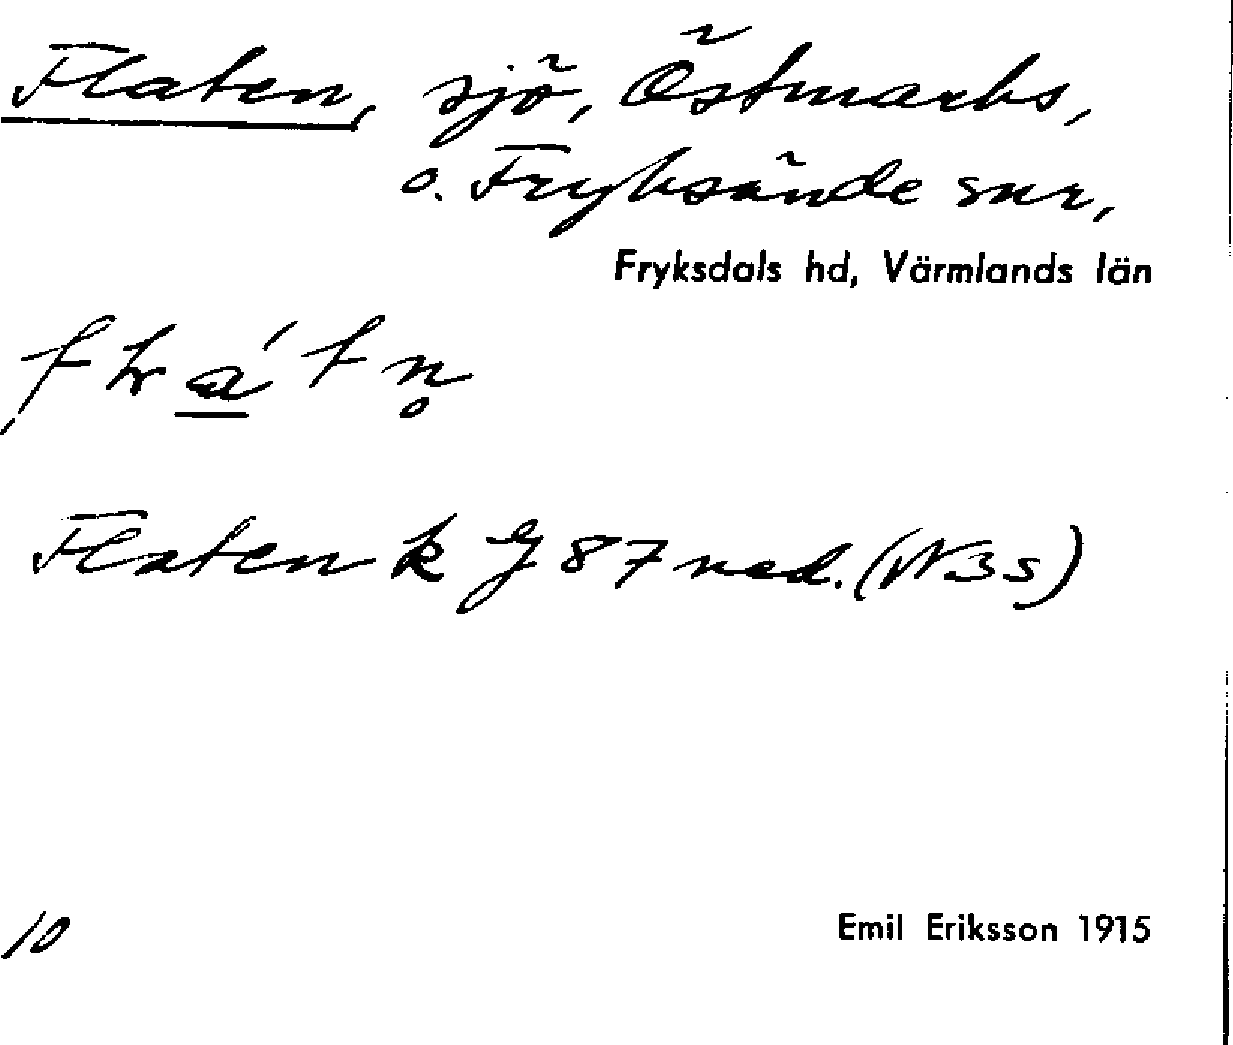 Flaten, sjö, Östmarks,
o. Fryksände snr,
Fryksdals hd, Värmlands län
Flaten k G 87 ned. (N3s)
10
Emil Eriksson 1915